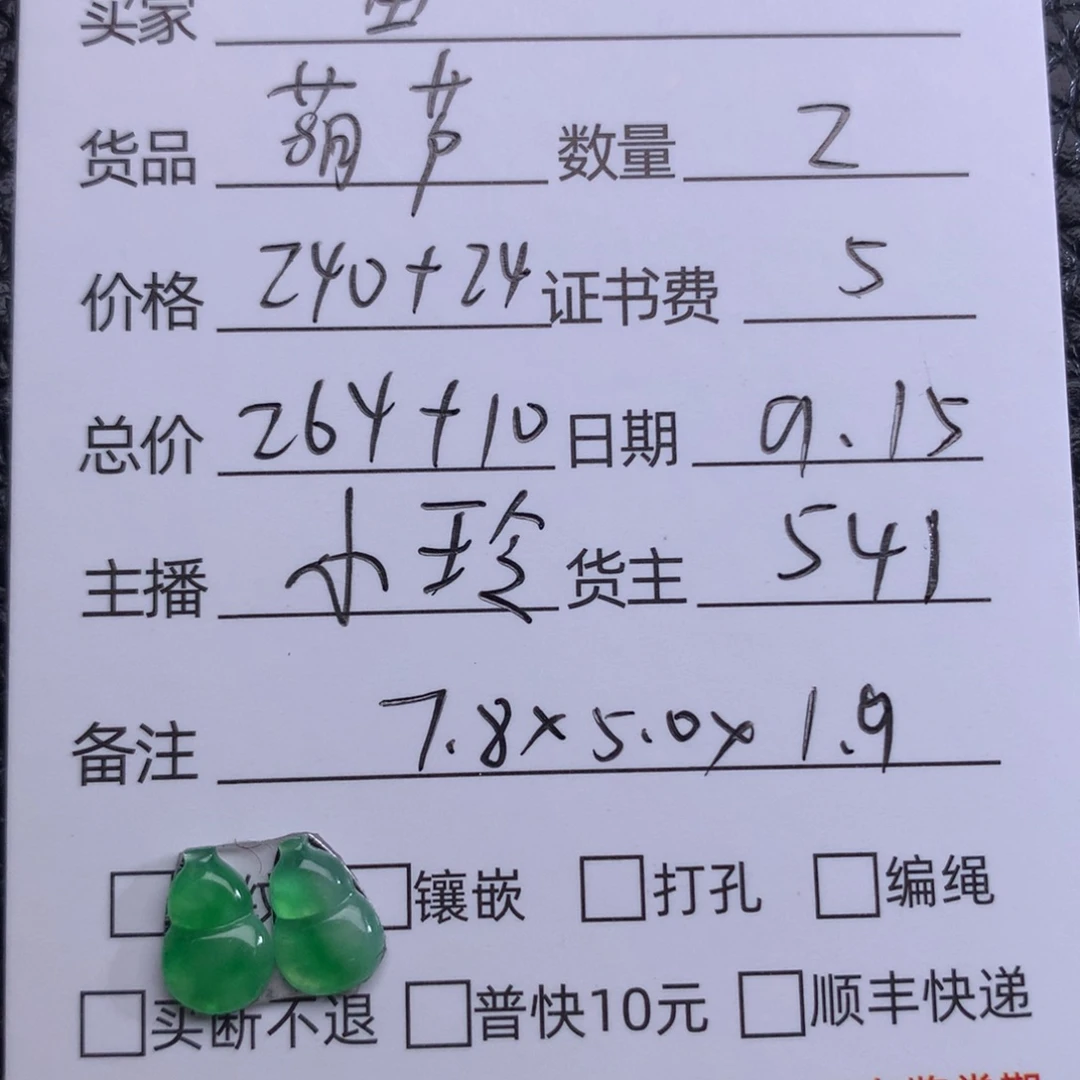 买家
货品 葫芦 数量 2
价格 240+24 证书费 5
总价 264+10 日期 9.15
主播 小玲 货主 541
备注 7.8×5.0×1.9
镶嵌 打孔 编绳
买断不退 普快10元 顺丰快递